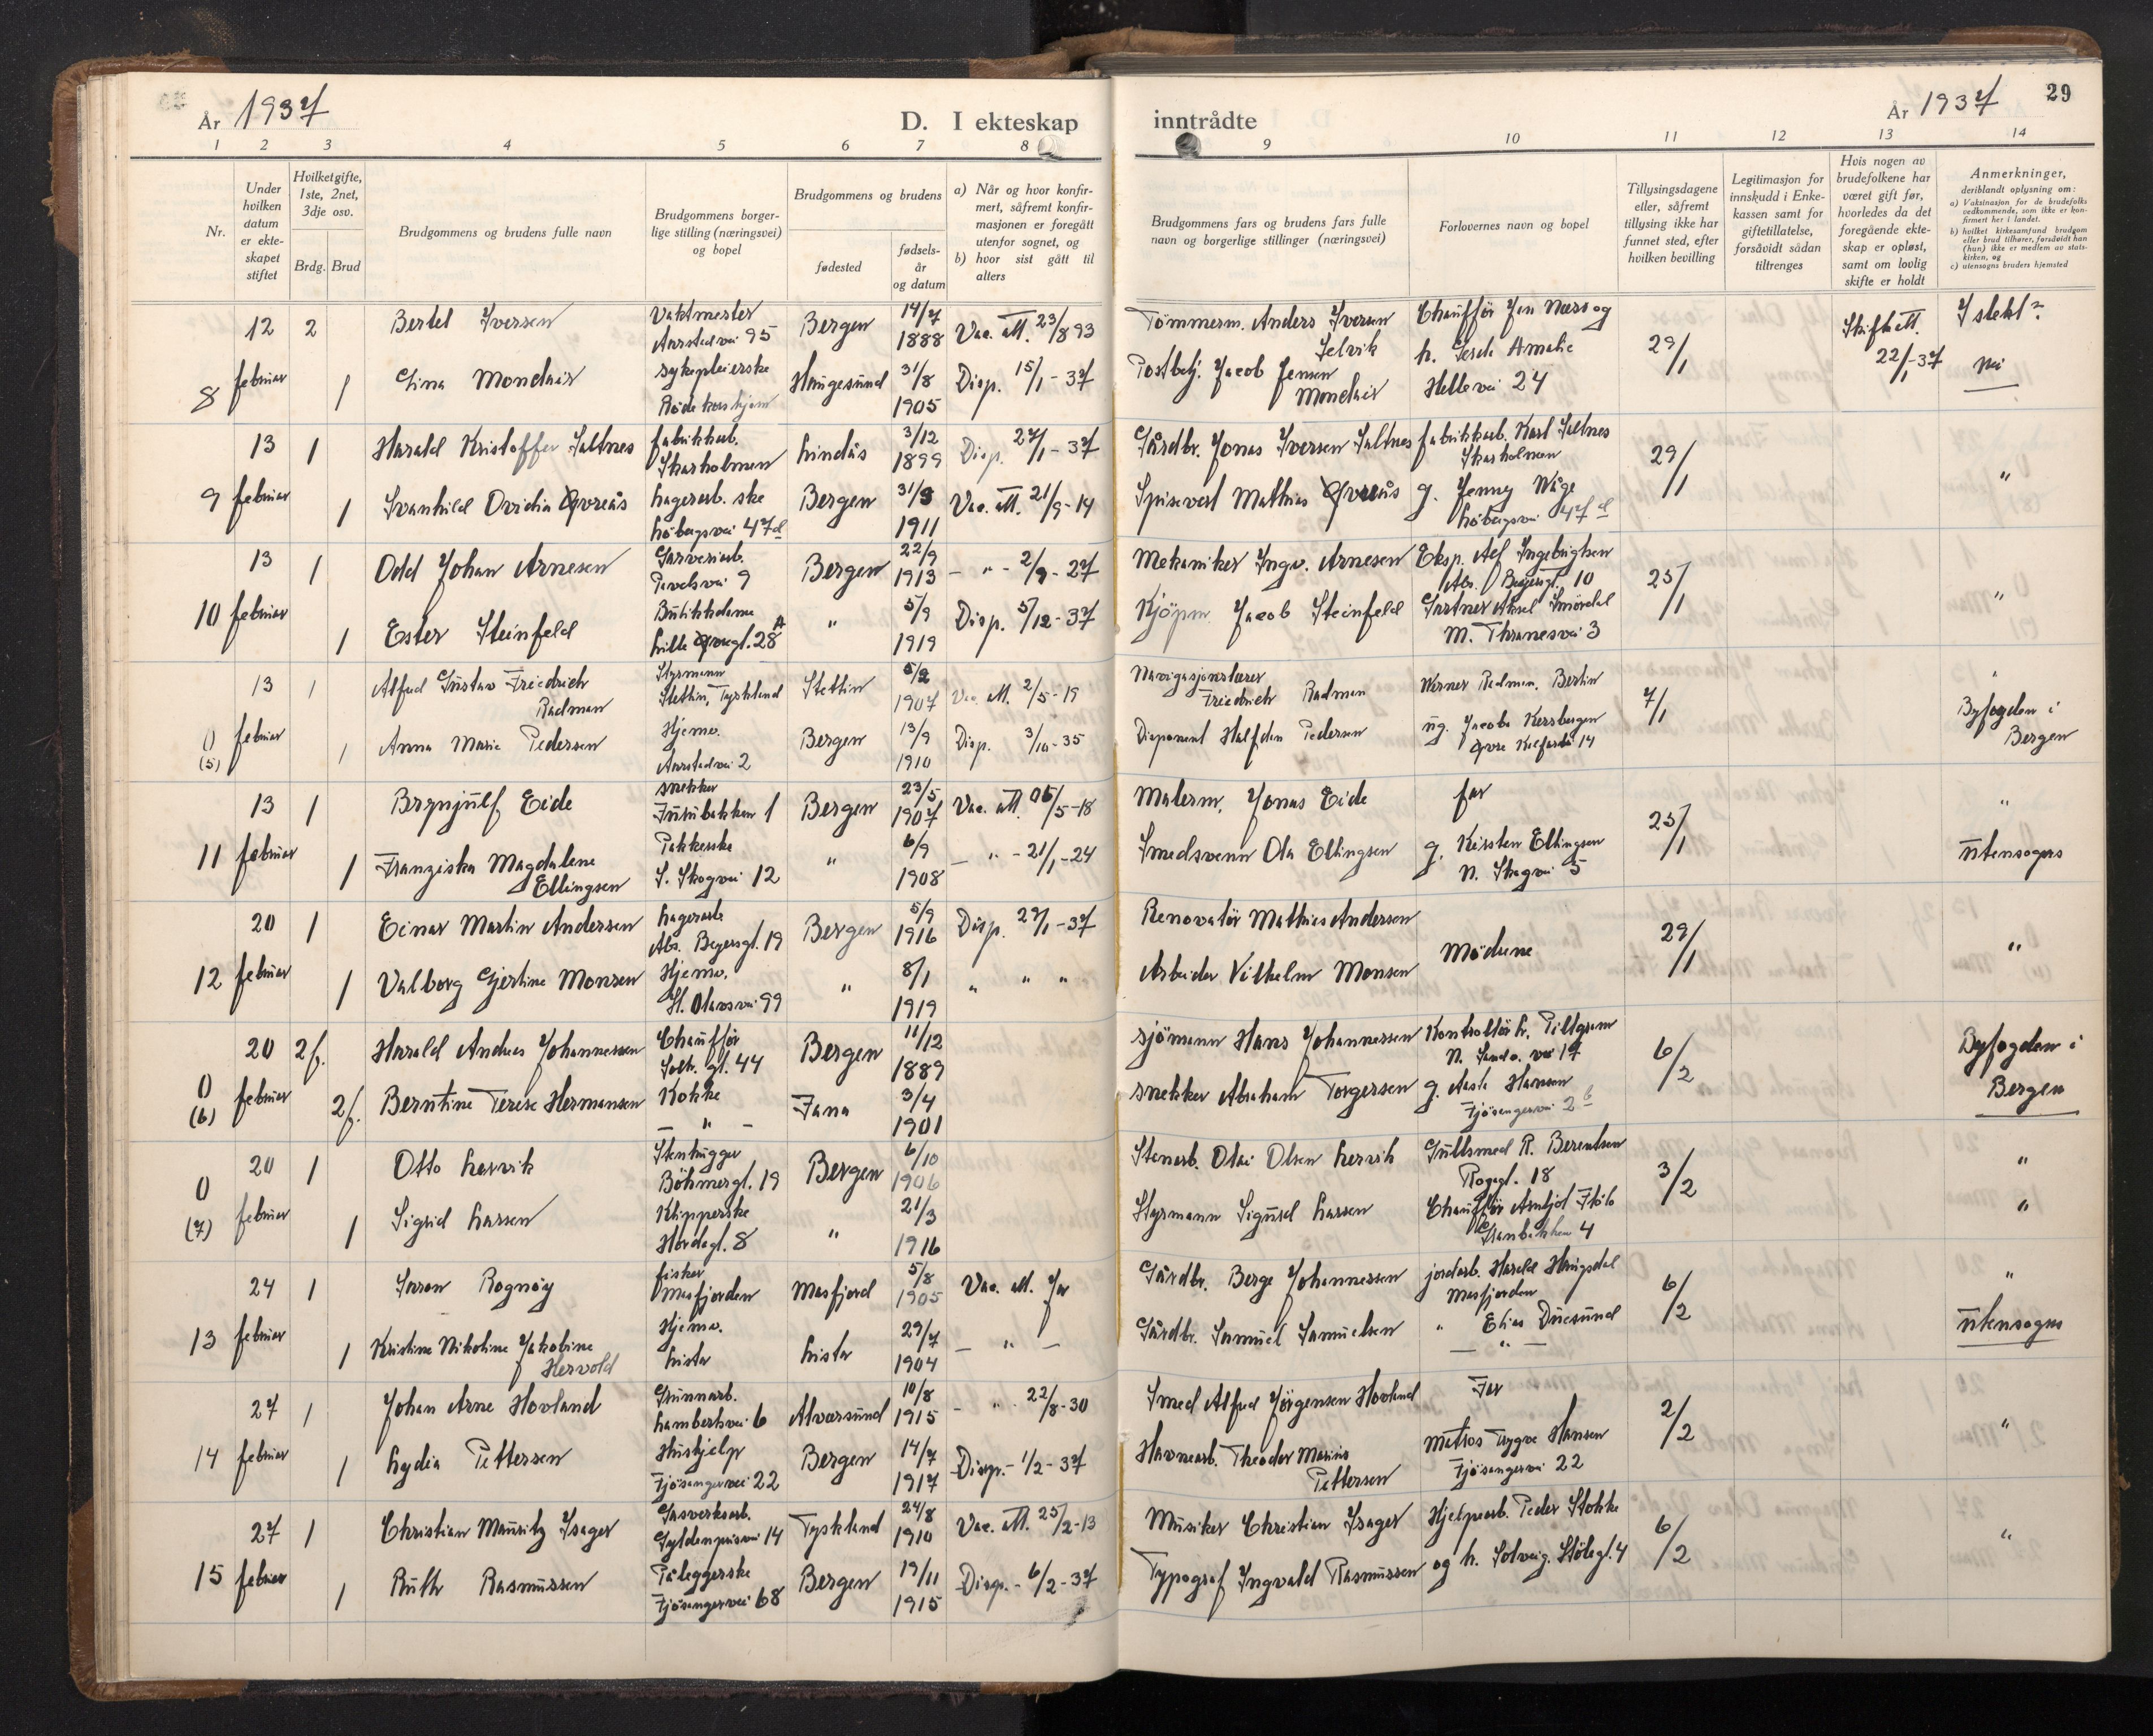 År 1937
D. I ekteskap
1 2 3 4 5 6 7 8
Nr.
Under hvilken datum er ekteskapet stiftet
Hvilket gifte, 1ste, 2net, 3dje osv.
Brdg. Brud
Brudgommens og brudens fulle navn
Brudgommens borgerlige stilling (næringsvei) og bopel
Brudgommens og brudens
fødested
fødselsår og datum
a) Når og hvor konfirmert, såfremt konfirmasjonen er foregått utenfor sognet, og
b) hvor sist gått til alters
12 2 Bertel Iversen Vaktmester Bergen 14/7
februar Aarstadvei 95 1888 Vac. att. 23/8 93
8 1 Gina Mondair sykepleierske Haugesund 31/8 Disp. 15/1-37
Røde kors hjem 1905
13 1 Harald Kristoffer Saltnes fabrikkarb. Lindås 3/12 Disp. 27/1-37
Skarholmen 1899
9 februar 1 Svanhild Ovidia Øvreås Lagerarb.ske Bergen 31/3 Vac. att. 21/9-14
Løbergsvei 47d 1911
13 1 Odd Johan Arnesen Garveriarb. Bergen 22/9 - " - 2/9-27
9 1913
10 februar 1 Ester Steinfeld Butikkdame " 5/9 Disp. 5/12-37
Lille Øvregt. 28A 1919
13 1 Alfred Gustav Friedrich Styrmann Stettin 5/2
Radman Stettin, Tyskland 1907 Vac. att. 2/5-19
0 (5) februar 1 Anna Marie Pedersen Hjemv. Bergen 13/9 Disp. 3/10-35
Aarstadvei 2 1910
13 1 Brynjulf Eide snekker Bergen 23/5 Vac. att.
1 1907 5-18
11 februar 1 Franziska Magdalene Pakkerske " 6/9 - " - 21/1-24
Ellingsen S. Skogvei 12 1908
20 1 Einar Martin Andersen Lagerarb. Bergen 5/9 Disp. 27/1-37
Abs. Beyersgt. 19 1916
12 februar 1 Valborg Gjertine Monsen Hjemv. " 8/1 " " "
St. Olavsvei 99 1919
20 2f. Harald Andreas Johannessen Chauffør Bergen 11/12
Solh. gt. 44 1889
0 (6) februar 2f. Berntine Terese Hermansen Kokke Fana 3/4
- " - 1901
20 1 Otto Lervik Stenhugger Bergen 6/10
Böhmergt. 19 1906
0 (7) februar 1 Sigrid Larsen Klipperske " 21/3
Hordagt. 8 1916
24 1 Rognøy fisker Masfjord 5/8 Vac. att. for
Masfjorden 1905
13 februar 1 Kristine Nikoline Jakobine Hjemv. Lister 29/7 - " -
Hervold Lister 1904
27 1 Johan Arne Hovland Grunnarb. Alversund 10/8 - " - 22/8-30
6 1915
14 februar 1 Lydia Pettersen Hushjelp Bergen 14/7 Disp. - 1/2-37
Fjøsangervei 22 1917
27 1 Christian Mauritz Isager Gasverksarb. Tyskland 24/8 Vac. att. 25/2-13
Gyldenprisvei 14 1910
15 februar 1 Ruth Rasmussen Påleggerske Bergen 19/11 Disp. - 6/2-37
Fjøsangervei 68 1915
inntrådte
År 1937
29
9 10 11 12 13 14
Brudgommens fars og brudens fars fulle navn og borgerlige stillinger (næringsvei)
Forlovernes navn og bopel
Tillysingsdagene eller, såfremt tillysing ikke har funnet sted, efter hvilken bevilling
Legitimasjon for innskudd i Enkekassen samt for giftetillatelse, forsåvidt sådan tiltrenges
Hvis nogen av brudefolkene har været gift før, hvorledes da det foregående ekteskap er opløst, samt om lovlig skifte er holdt
Anmerkninger,
deriblandt oplysning om:
a) Vaksinasjon for de brudefolks vedkommende, som ikke er konfirmert her i landet.
b) hvilket kirkesamfund brudgom eller brud tilhører, forsåvidt han (hun) ikke er medlem av statskirken, og
c) utensogns bruders hjemsted
Tömmerm. Anders Iversen Chauffør Jen Næss og Skifteatt. I slekt?
Selvik h. Gerda Amalie 29/1 22/1-37
Postbetj. Jacob Jensen Helleveien 24 Nei
Mondair
Gårdbr. Jonas Iversen Saltnes fabrikkarb. Karl Saltnes
Skarholmen 29/1
Spisevert Mathias Øvreås g. Jenny Våge "
Løbergsvei 47d
Mekaniker Ingv. Arnesen Eksp. Alf Ingebrigtsen
Abs. Beyersgt. 10 25/1
Kjöpm. Jacob Steinfeld Gartner Aksel Smørdal "
M. Thranesvei 3
Navigasjonslærer Werner Radman, Berlin "
Friedrich Radman 7/1 Byfogden i
Disponent Halfdan Pedersen ug. Jacoba Kersbergen Bergen
Øvre Kalfarlei 14
Malerm. Jonas Eide far "
25/1
Smedsvenn Ola Ellingsen g. Kirsten Ellingsen utensogns
N. Skogvei 5
Renovatör Mathias Andersen
Mødrene 29/1 "
Arbeider Vilhelm Monsen
Sjömann Hans Johannessen Kontrollör L. Piltgram Byfogden i
6/2
Snekker Abraham Torgersen g. Aasta Hansen Bergen
Fjøsangervei 2b
Stenarb. Olai Olsen Lervik Gullsmed R. Berentsen "
18 3/2
Styrmann Sigurd Larsen Chauffør "
4
Gårdbr. Berge Johannessen jordarb. Harald Haugsdal "
Masfjorden 6/2
Gårdbr. Samuel Samuelsen " Elias Duesund utensogns
- " -
Smed Alfred Jørgensen Hovland Far
2/2 "
Havnearb. Theodor Marius Matros Trygve Hansen
Pettersen Fjøsangervei 22
Musiker Christian Isager Hjelpearb. Peder Stokke
6/2 "
Typograf Ingvald Rasmussen og h. Solveig. Stølegt. 4